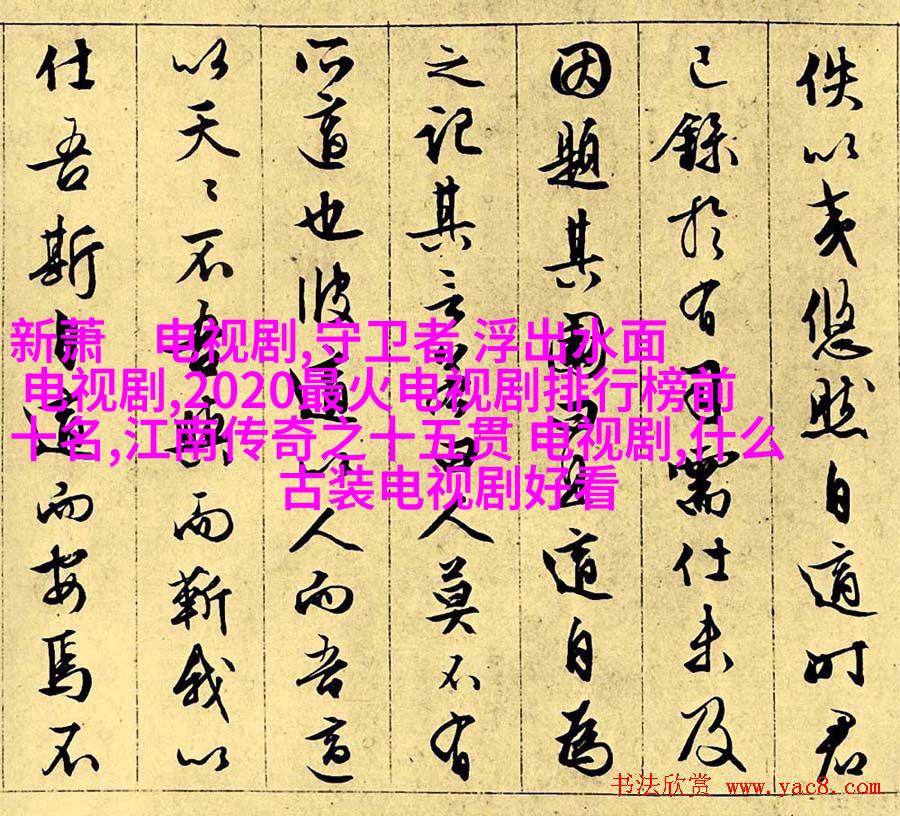 佚以夷悠然自適时君
已錄於有司需仕未及
因題其適自為
之記其言人莫不有
所適也彼適以人而吾適
以天〻不而蘄我以
仕吾斯自適而安焉不
新萧 电视剧,守卫者 浮出水面
电视剧,2020最火电视剧排行榜前
十名,江南传奇之十五贯 电视剧,什么
古装电视剧好看
书法欣赏 www.yac8.com